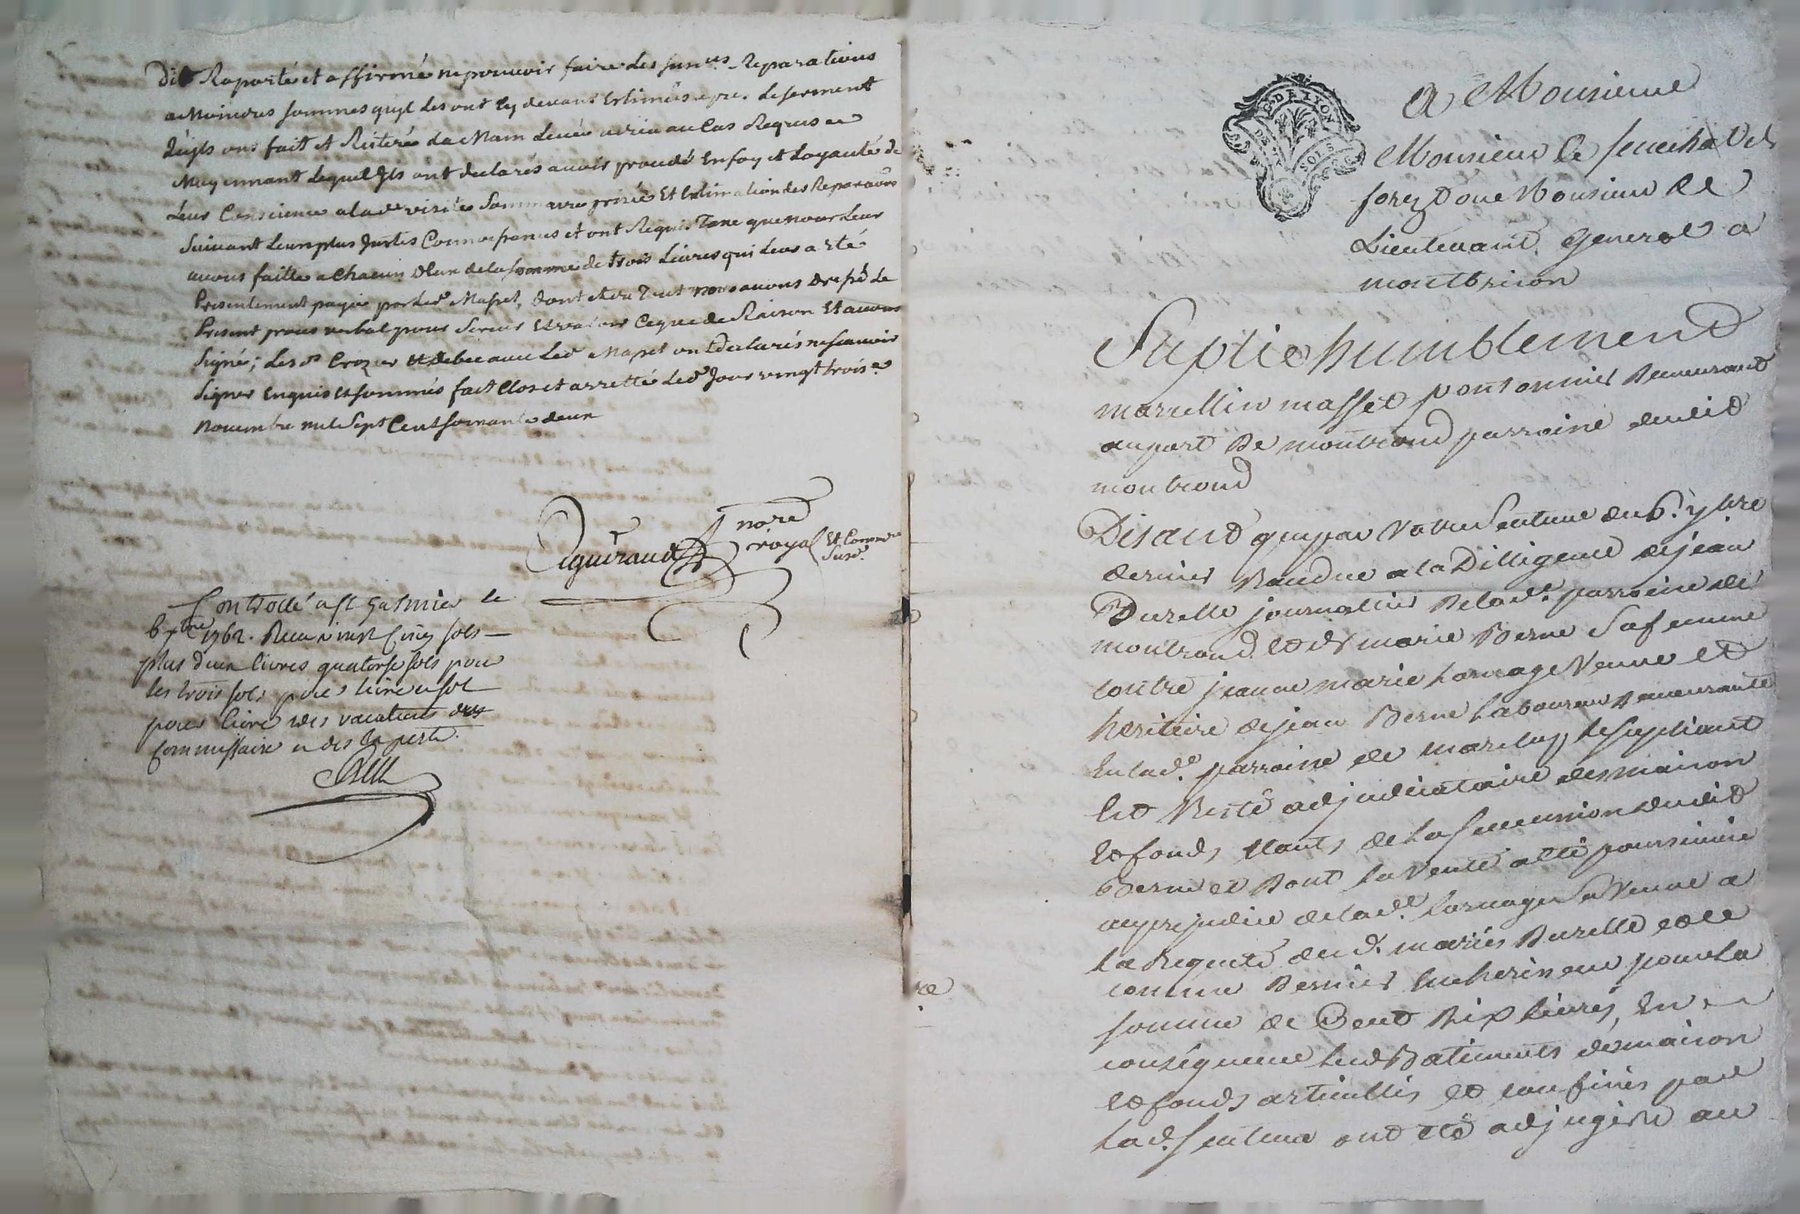 dit Raporté et affirmé ne pouvoir faire les susd.s Reparations
a Moindres sommes qu'yls Les ont Cy devant Estimées apres Le serment
qu'yls ont fait et Reiteré La Main Levée au Cas Requis et
Moyennant Lequel yls ont declarés avoir procedé En foy et Loyauté de
Leur Conscience a lad.e visite Sommaire prisée Et Estimation des Reparaõns
Suivant Leur plus Justes Connoissances et ont Requis Taxe que nous Leur
avons faitte a Chacun D'Eux de la somme de trois Livres qui Leur a Eté
Presentement payée par Led. Masset, dont et du Tout nous avons Dressé Le
Present procès verbal pour Servir Et valoir Ce que de Raison Et avons
Signé; Les d.s Crozier et avec Led. Masset ont declarés ne scavoir
Signer Enquis et sommés fait Clos et arretté Led. Jour vingt trois e
Novembre mil Sept Cent soixante deux
Eguiraud
no.re royal Et Comm.re
Controllé a St Galmier le
6 x.bre 1762. Recu vingt Cinq sols
plus deux livres quatorse sols pour
les trois sols pour livre et sol
pour livre des vacations du
Commissaire et des Experts
G. DE LYON
SOLS
A Monsieur
Monsieur Le senechal de
forez ou a Monsieur Le
Lieutenant General a
montbrison
Suplie humblement
marcellin masset pontonnier Demeurant
au port De montrond parroisse dudit
montrond
Disant que par Votre Sentence du 6.e 7bre
dernier Rendue a la Dilligence de jean
Durelle journallier De lad.e parroisse de
montrond et de marie Berne Sa femme
contre jeanne marie Lornage Veuve et
heritiere de jean Berne Laboureur Demeurante
En lad.e parroisse de marclop, le supliant
Est Resté adjudicataire des maison
et fonds Etants de la succession dudit
Berne et Dont la Vente a Eté poursuivie
au prejudice de lad.e Lornage Sa Veuve a
la Requete des d. mariés Durelle et ce
comme Dernier Encherisseur pour la
somme de Cent Dix livres, En
consequence lesd. Batiments de maison
et fonds articullés et confinés par
lad. sentence ont eté adjugés au